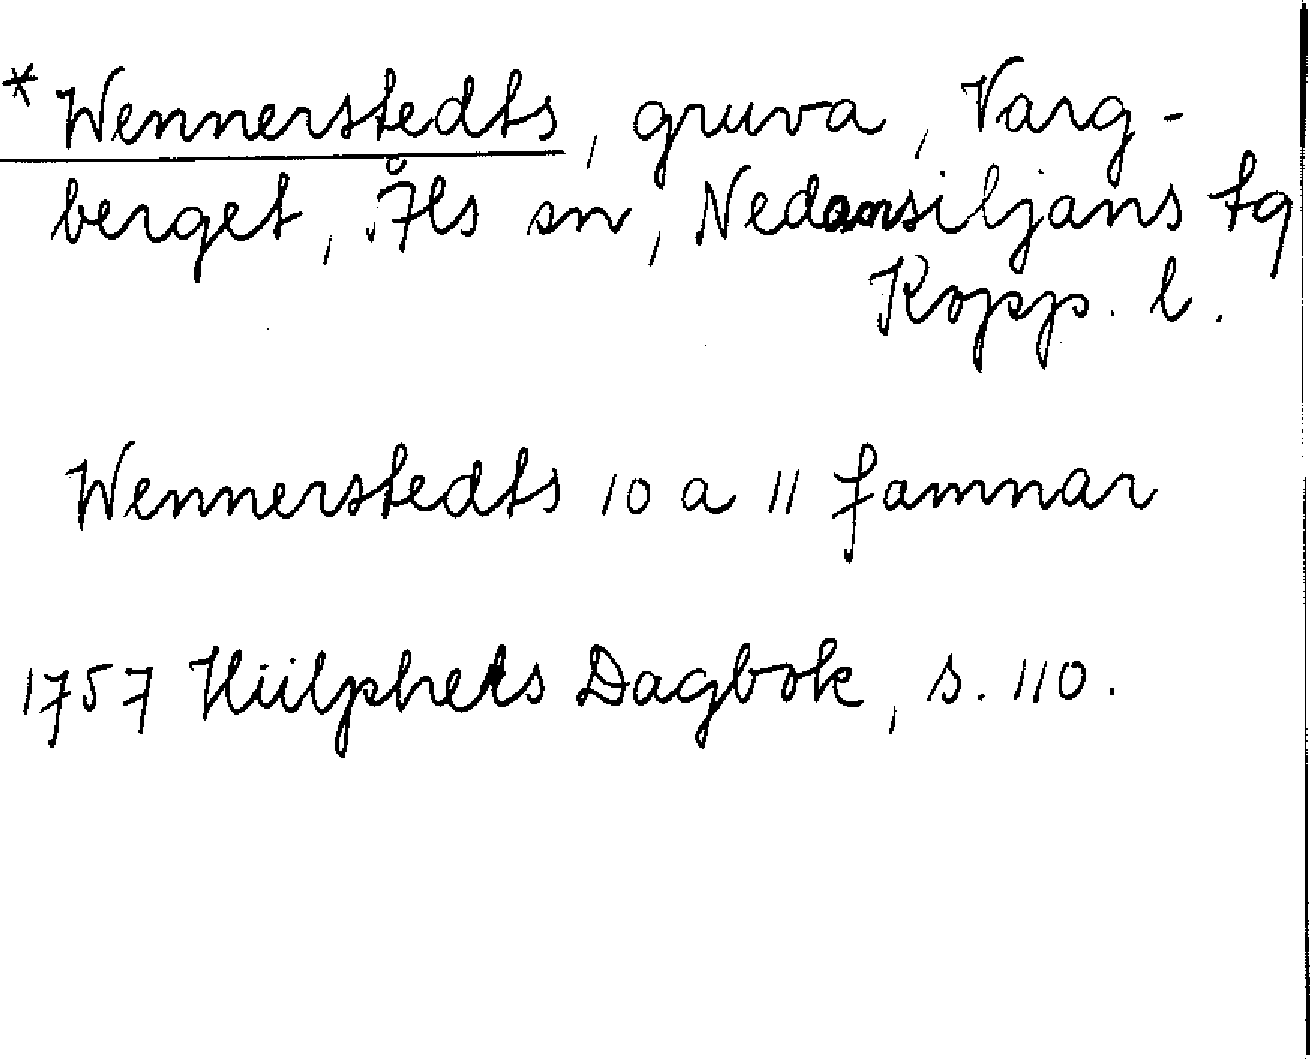 *Wennerstedts, gruva, Varg-
berget, Åls sn, Nedansiljans tg
Kopp. l.
Wennerstedts 10 a 11 famnar
1757 Hülphers Dagbok, s. 110.